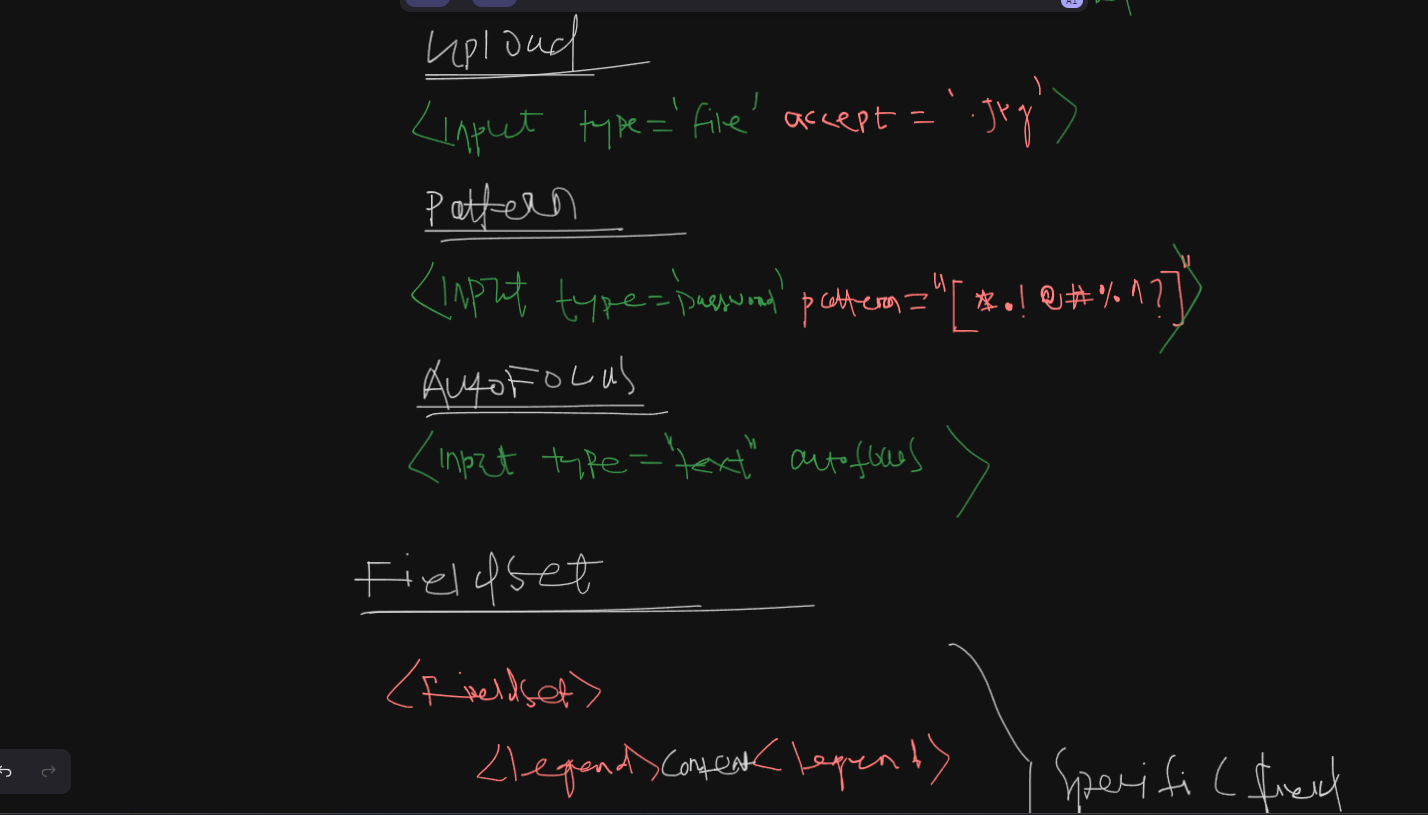 Upload
<Input type='file' accept='.jpg'>
Pattern
<Input type='password' pattern="[*.!@#%^?]">
AutoFocus
<Input type="text" autofocus >
Fieldset
<Fieldset>
<legend>Content<legend>
Specific field